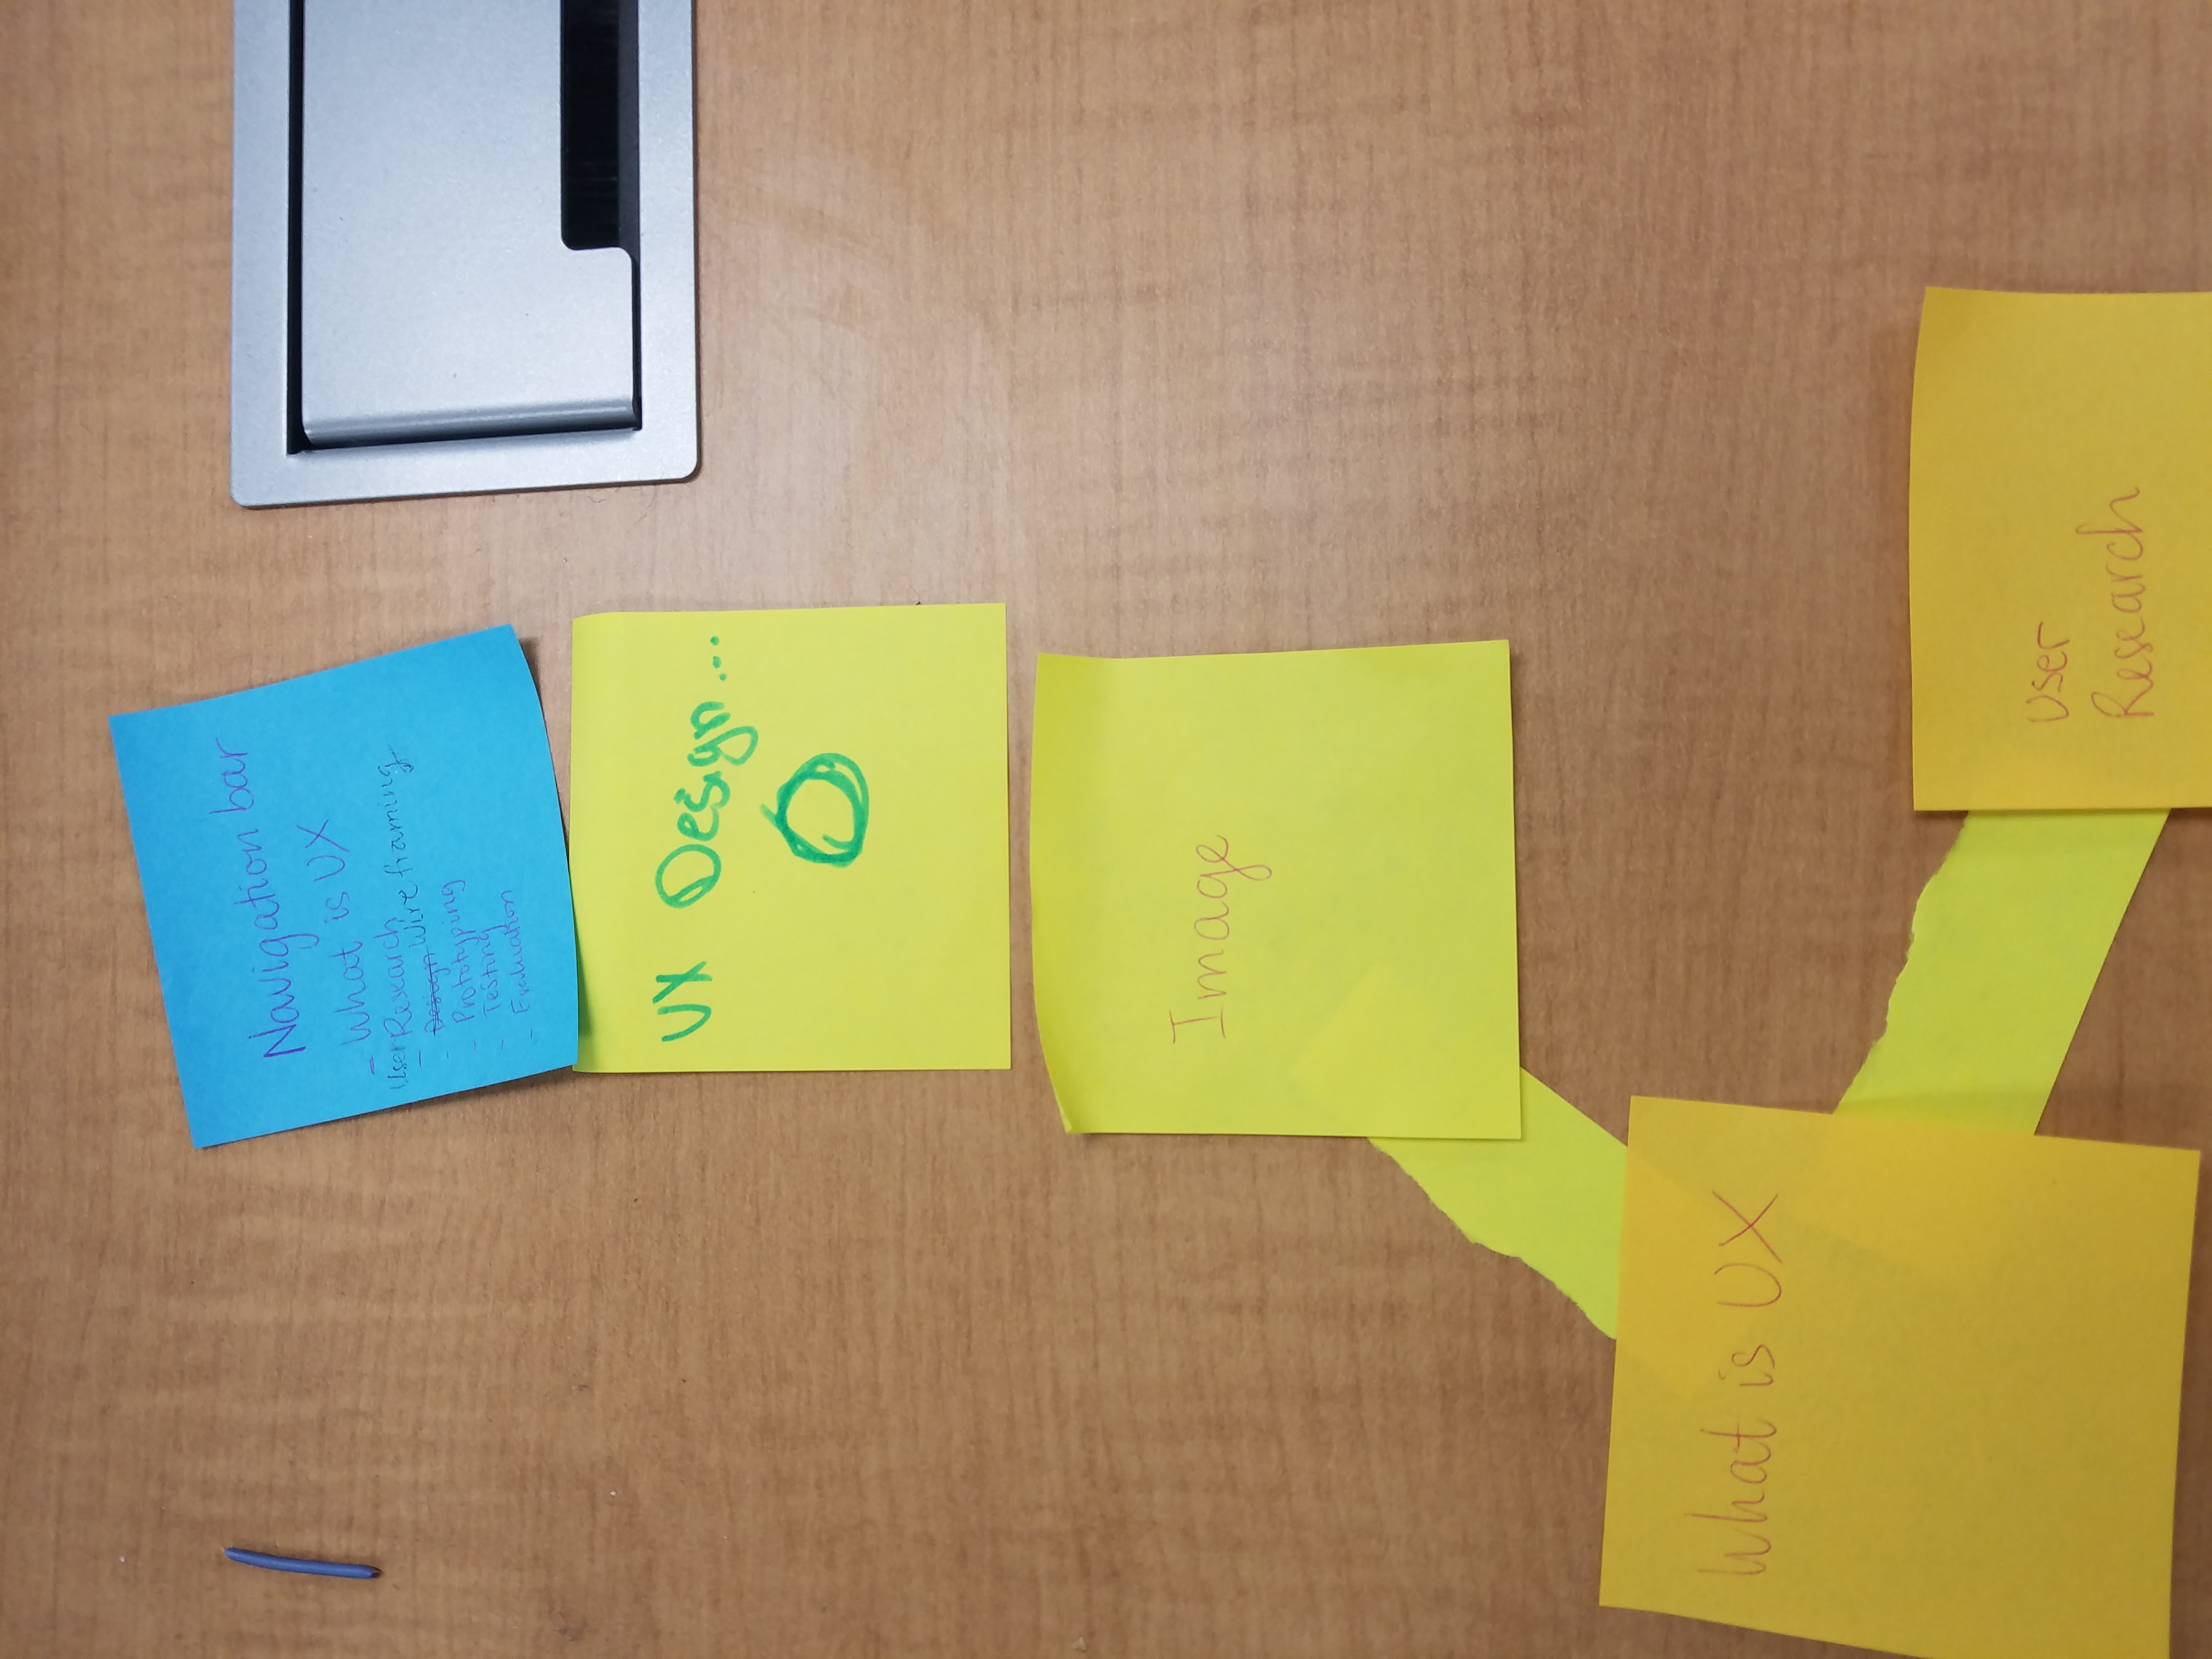 Navigation bar
- What is UX
- User Research
- Design Wireframing
- Prototyping
- Testing
- Evaluation
UX Design...
Image
What is UX
User
Research